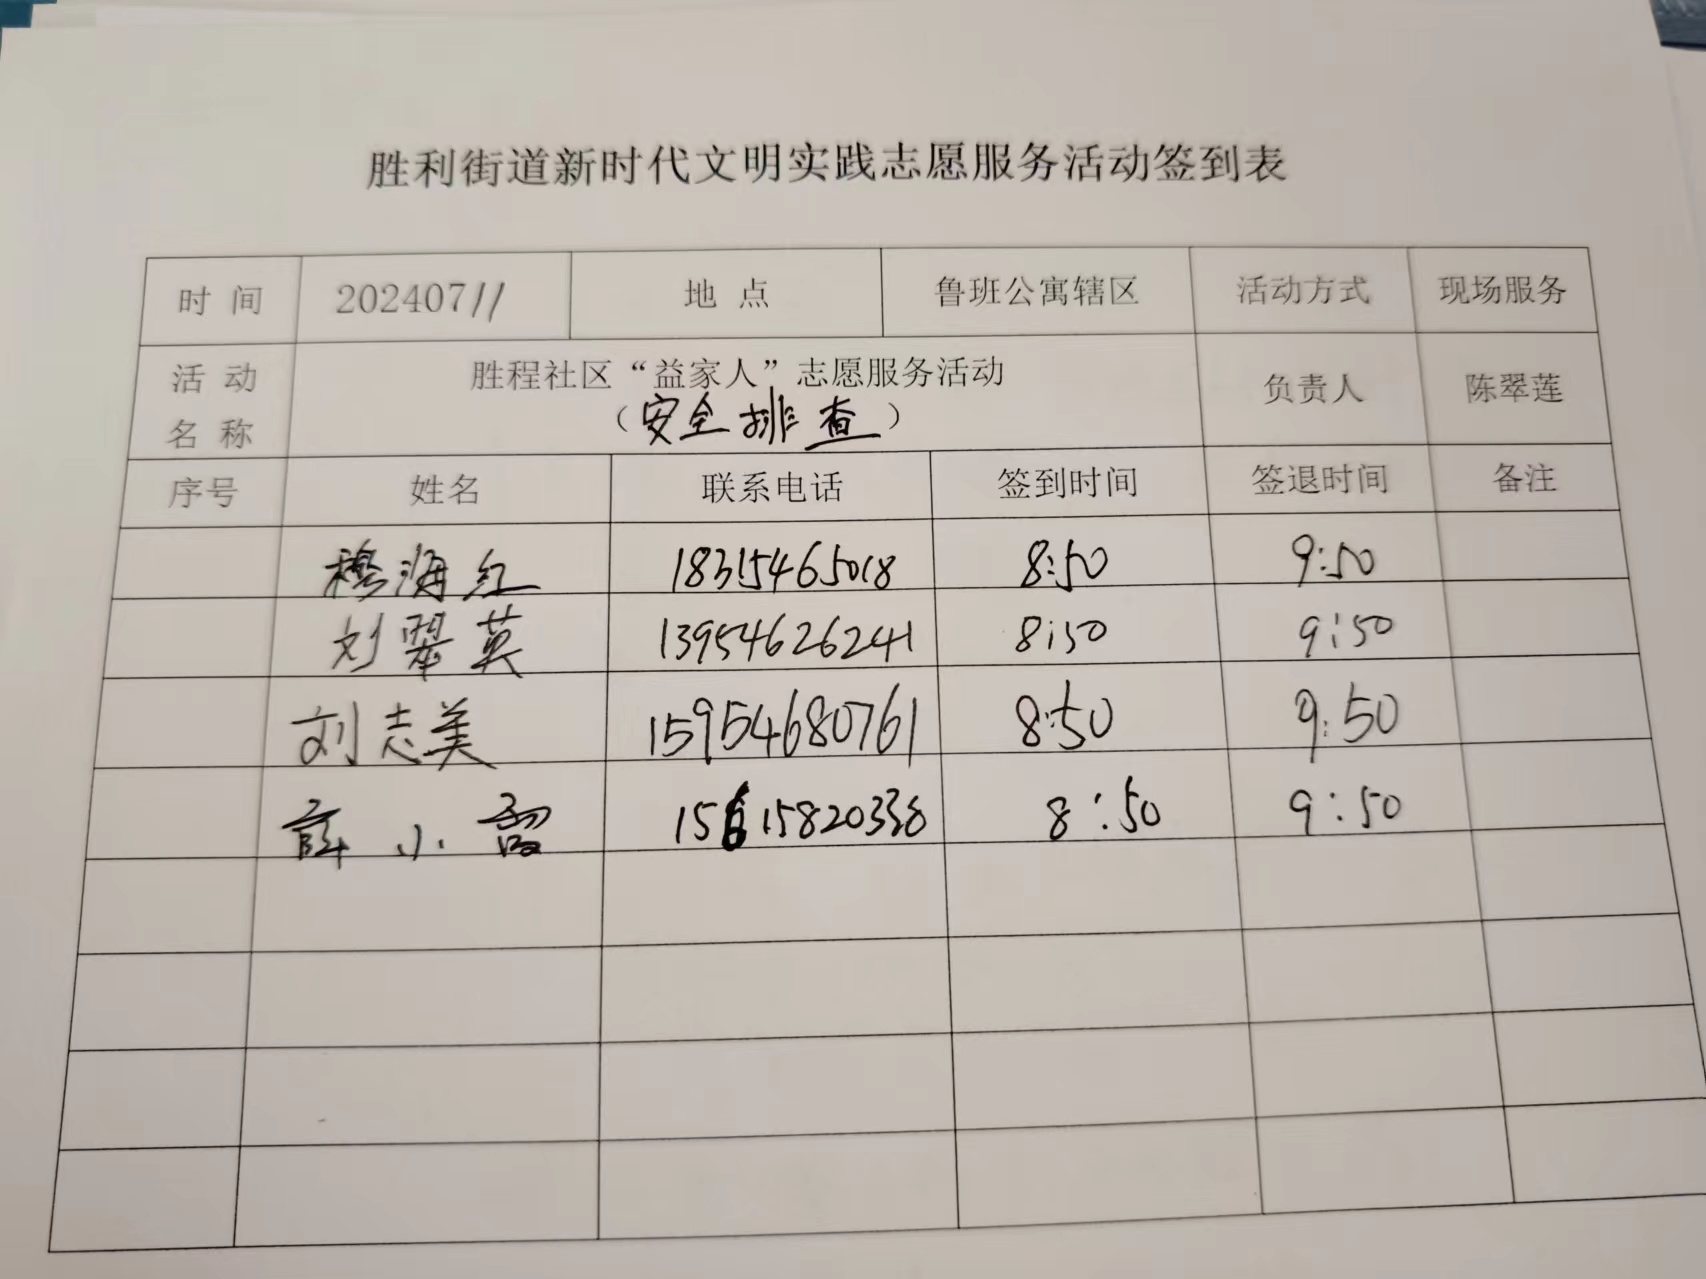 胜利街道新时代文明实践志愿服务活动签到表
时 间 20240711 地 点 鲁班公寓辖区 活动方式 现场服务
活 动 名 称 胜程社区“益家人”志愿服务活动 负责人 陈翠莲
（安全排查）
序号 姓名 联系电话 签到时间 签退时间 备注
穆海红 18315465018 8:50 9:50
刘翠英 13954626241 8:50 9:50
刘志美 15954680761 8:50 9:50
薛小霞 15615820338 8:50 9:50